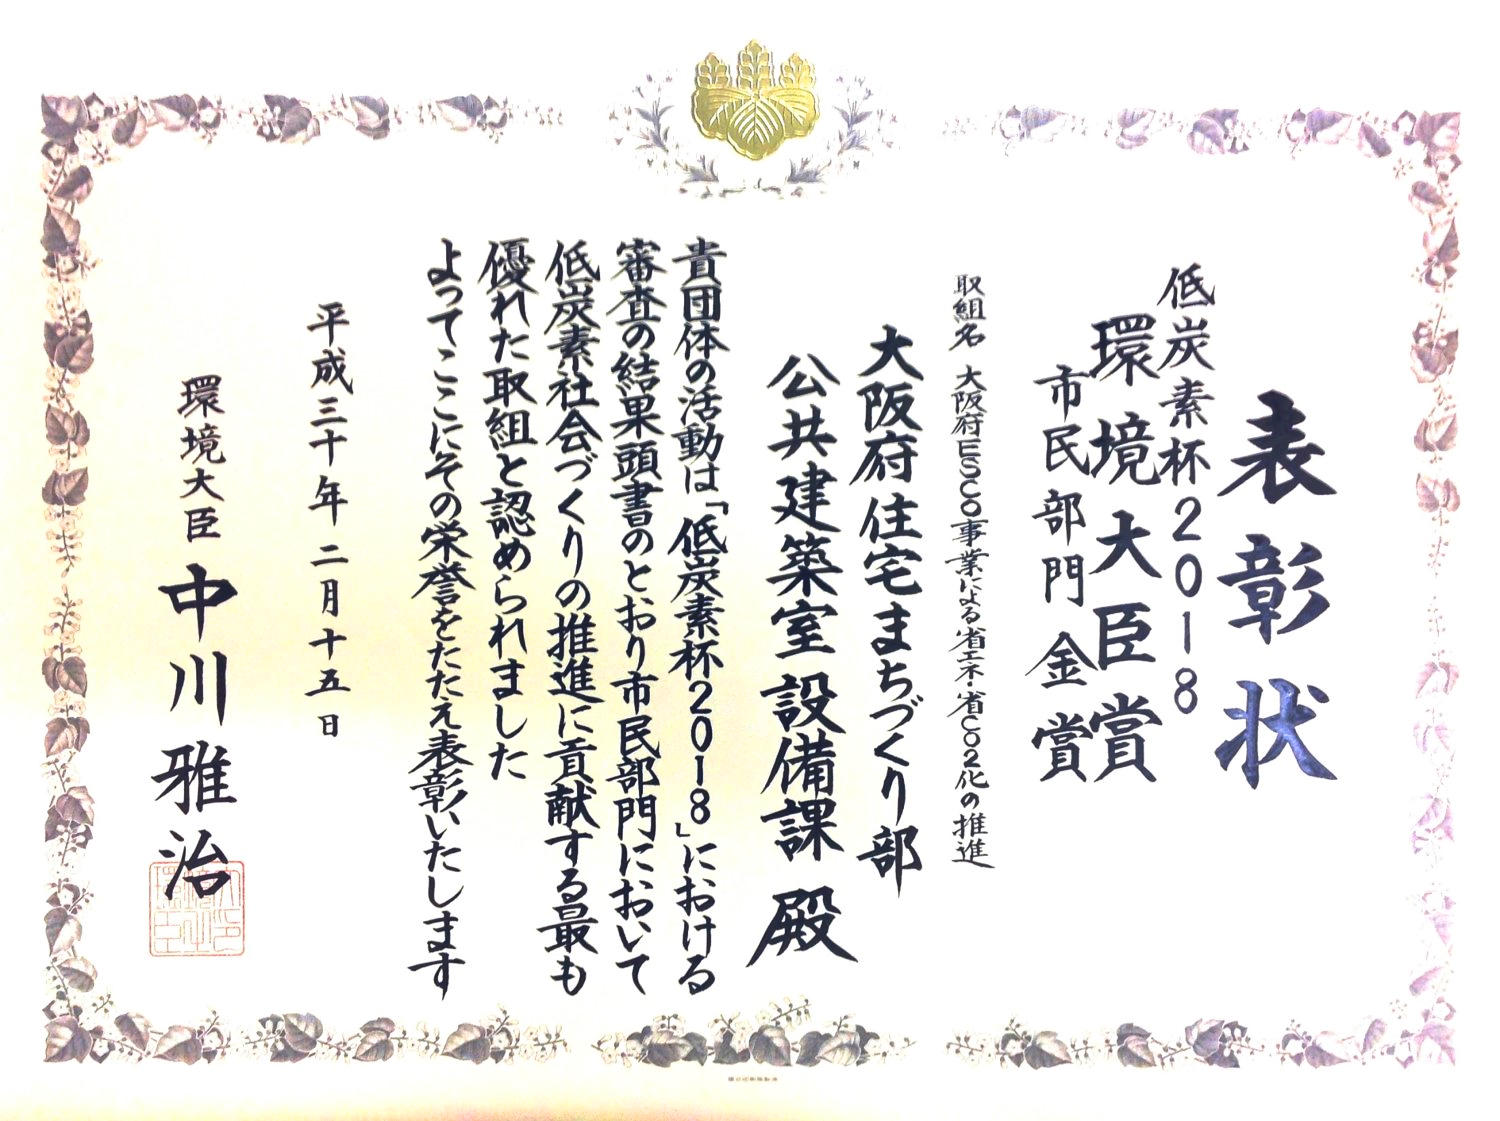 表彰状
低炭素杯2018
環境大臣賞
市民部門 金賞
取組名 大阪府ESCO事業による省エネ・省CO2化の推進
大阪府住宅まちづくり部
公共建築室設備課 殿
貴団体の活動は「低炭素杯2018」における
審査の結果頭書のとおり市民部門において
低炭素社会づくりの推進に貢献する最も
優れた取組と認められました
よってここにその栄誉をたたえ表彰いたします
平成三十年 二月十五日
環境大臣 中川雅治
環境大臣之印